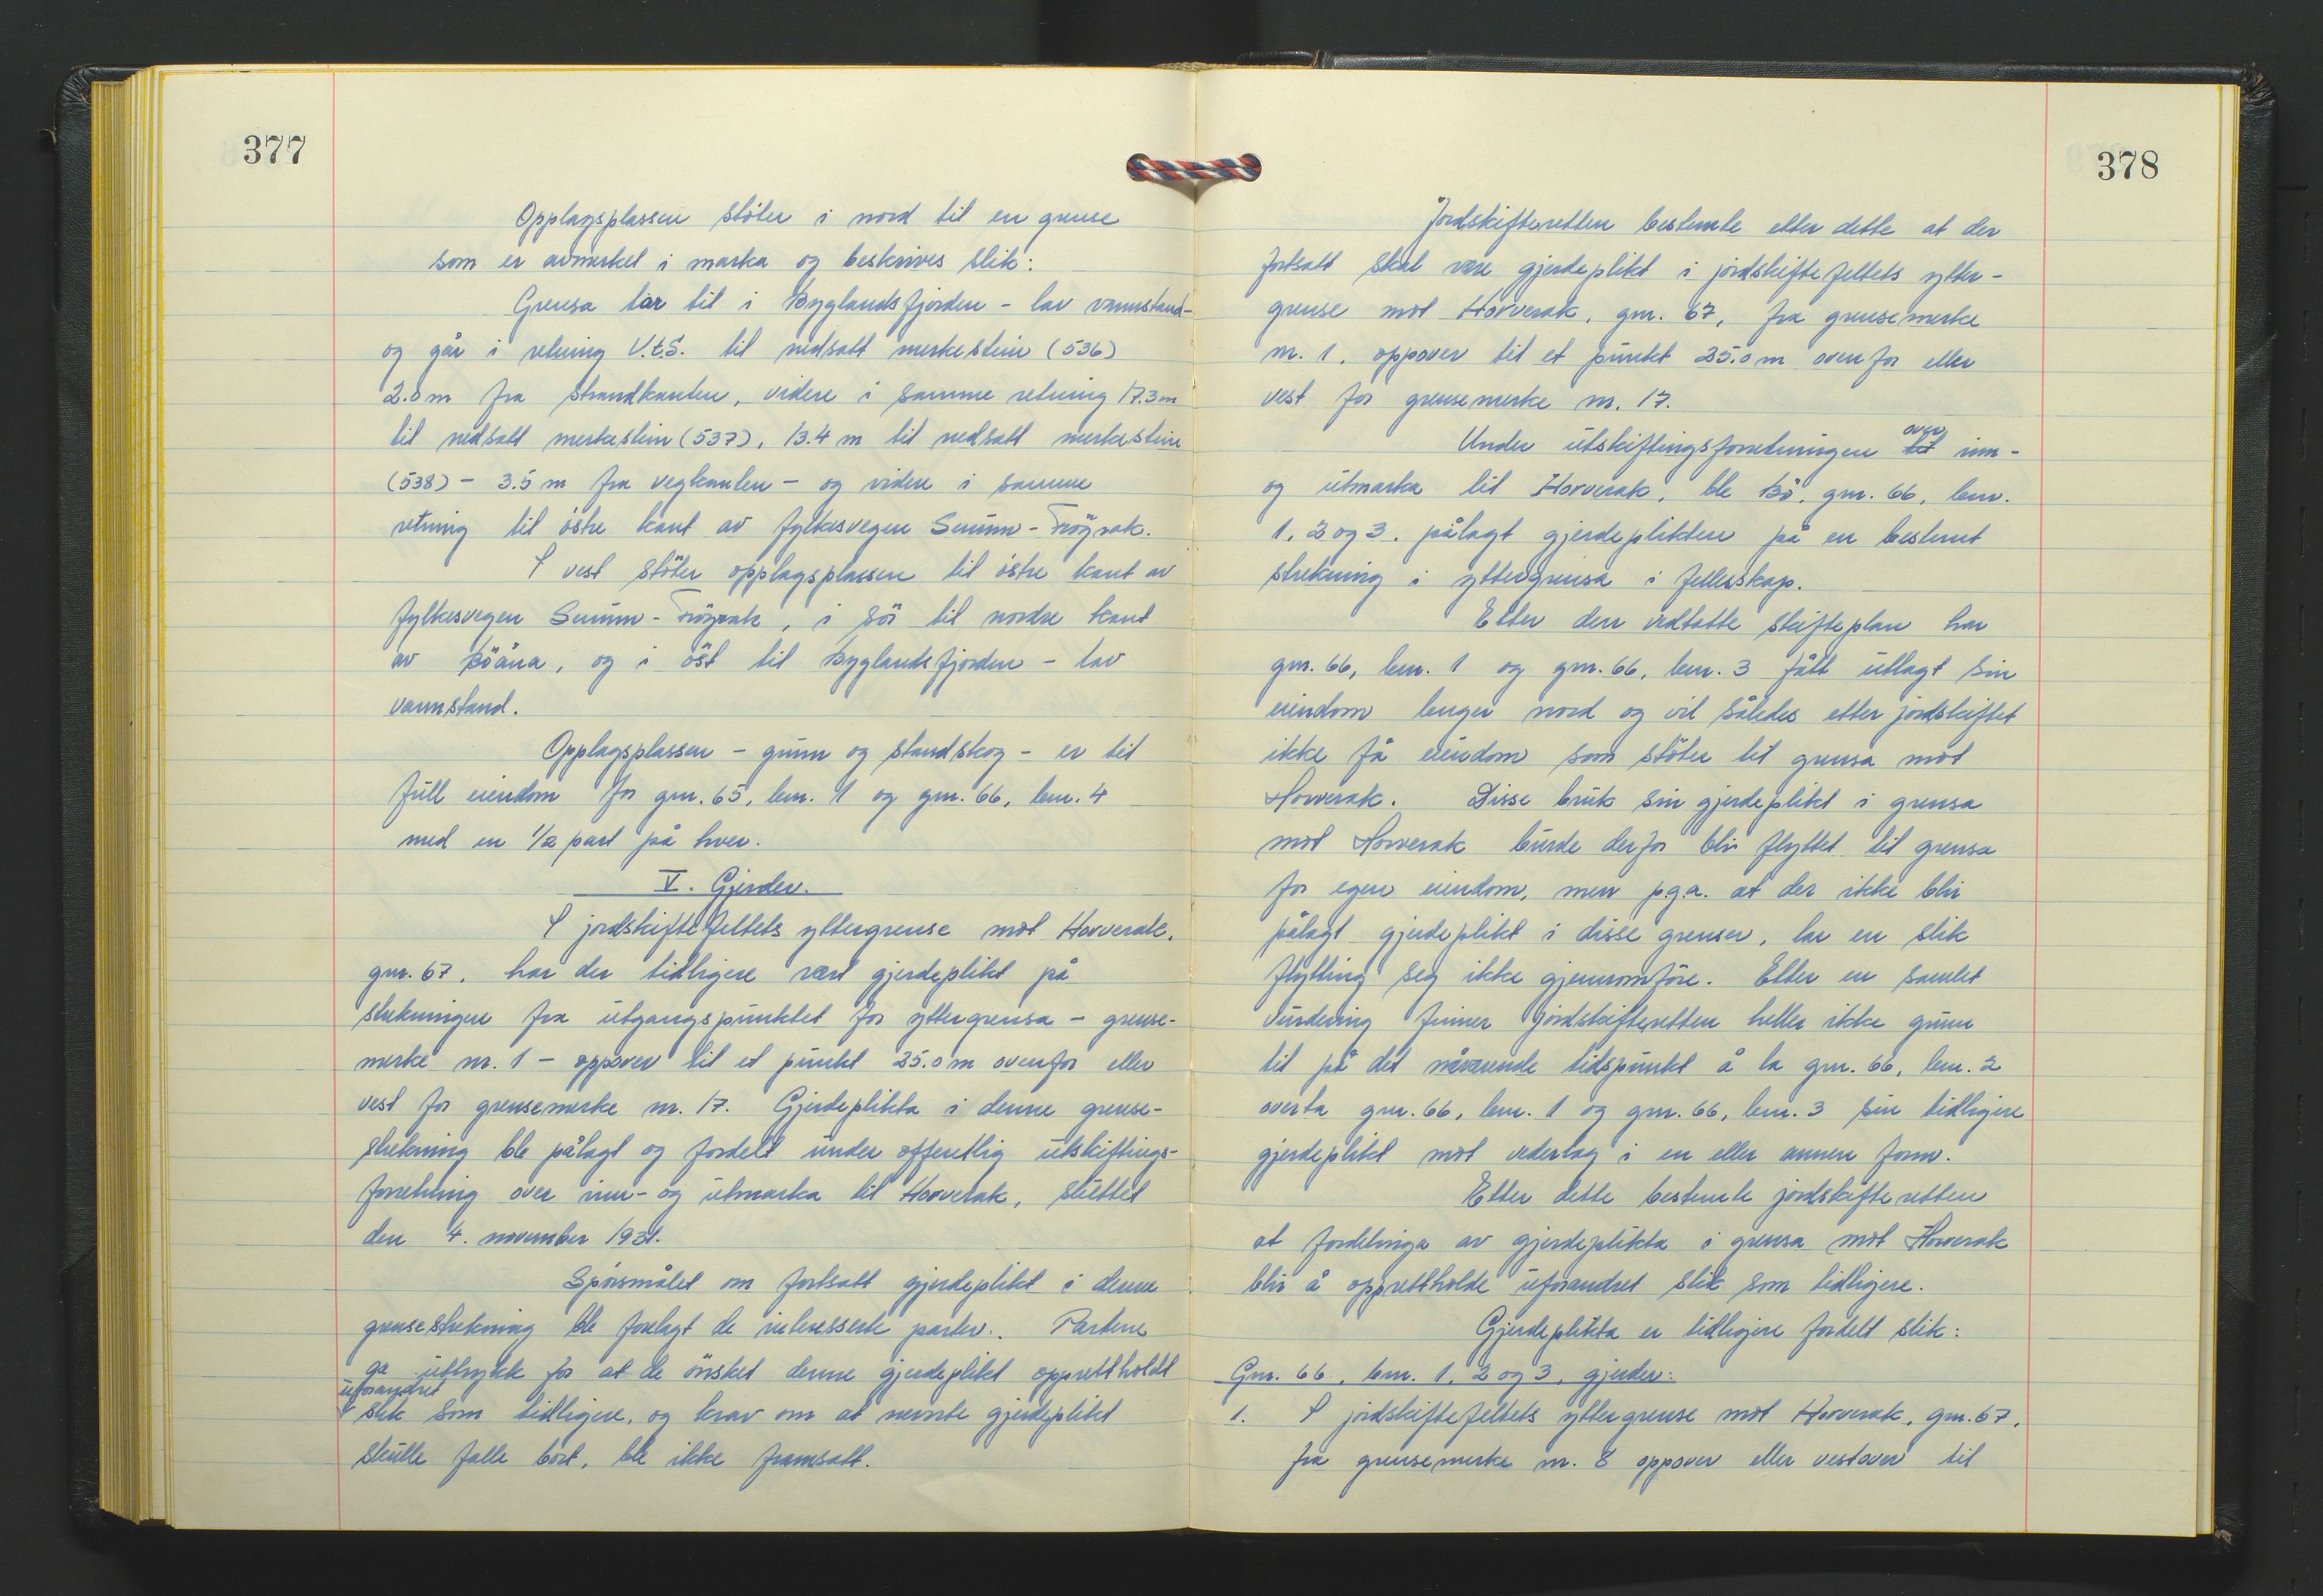 377
Opplagsplassen støter i nord til en grense
som er avmerket i marka og beskrives slik:
Grensa tar til i Byglandsfjorden - lav vannstand -
og går i retning V.t.S. til nedsatt merkestein (536)
2.0 m fra strandkanten, videre i samme retning 17.3 m
til nedsatt merkestein (537), 13.4 m til nedsatt merkestein
(538) - 3.5 m fra vegkanten - og videre i samme
retning til østre kant av fylkesvegen Senum - Frøyrak.
I vest støter opplagsplassen til østre kant av
fylkesvegen Senum - Frøyrak, i sør til nordre kant
av Böåna, og i öst til Byglandsfjorden - lav
vannstand.
Opplagsplassen - grunn og standskog - er til
full eiendom for gnr. 65, bnr. 1 og gnr. 66, bnr. 4
med en 1/2 part på hver.
V. Gjerder.
I jordskiftefeltets yttergrense mot Horverak,
gnr. 67, har der tidligere vært gjerdeplikt på
strekningen fra utgangspunktet for yttergrensa - grense-
merke nr. 1 - oppover til et punkt 25.0 m ovenfor eller
vest for grensemerke nr. 17. Gjerdeplikta i denne grense-
strekning ble pålagt og fordelt under offentlig utskiftings-
forretning over inn- og utmarka til Horverak, sluttet
den 4. november 1931.
Spörsmålet om fortsatt gjerdeplikt i denne
grensestrekning ble forelagt de interesserte parter. Partene
ga uttrykk for at de önsket denne gjerdeplikt opprettholdt
uforandret
slik som tidligere, og krav om at nevnte gjerdeplikt
skulle falle bort, ble ikke framsatt.
378
Jordskifteretten bestemte etter dette at der
fortsatt skal være gjerdeplikt i jordskiftefeltets ytter-
grense mot Horverak, gnr. 67, fra grensemerke
nr. 1, oppover til et punkt 25.0 m ovenfor eller
vest for grensemerke nr. 17.
over
Under utskiftingsforretningen til inn-
og utmarka til Horverak, ble Bö, gnr. 66, bnr.
1, 2 og 3, pålagt gjerdeplikten på en bestemt
strekning i yttergrensa i fellesskap.
Etter den vedtatte skifteplan har
gnr. 66, bnr. 1 og gnr. 66, bnr. 3 fått utlagt sin
eiendom lenger nord og vil således etter jordskiftet
ikke få eiendom som støter til grensa mot
Horverak. Disse bruk sin gjerdeplikt i grensa
mot Horverak burde derfor bli flyttet til grensa
for egen eiendom, men p.g.a. at der ikke blir
pålagt gjerdeplikt i disse grenser, lar en slik
flytting seg ikke gjennomföre. Etter en samlet
vurdering finner jordskifteretten heller ikke grunn
til på det nåværende tidspunkt å la gnr. 66, bnr. 2
overta gnr. 66, bnr. 1 og gnr. 66, bnr. 3 sin tidligere
gjerdeplikt mot vederlag i en eller annen form.
Etter dette bestemte jordskifteretten
at fordelinga av gjerdeplikta i grensa mot Horverak
blir å opprettholde uforandret slik som tidligere.
Gjerdeplikta er tidligere fordelt slik:
Gnr. 66, bnr. 1, 2 og 3, gjerder:
1. I jordskiftefeltets yttergrense mot Horverak, gnr. 67,
fra grensemerke nr. 8 oppover eller vestover til